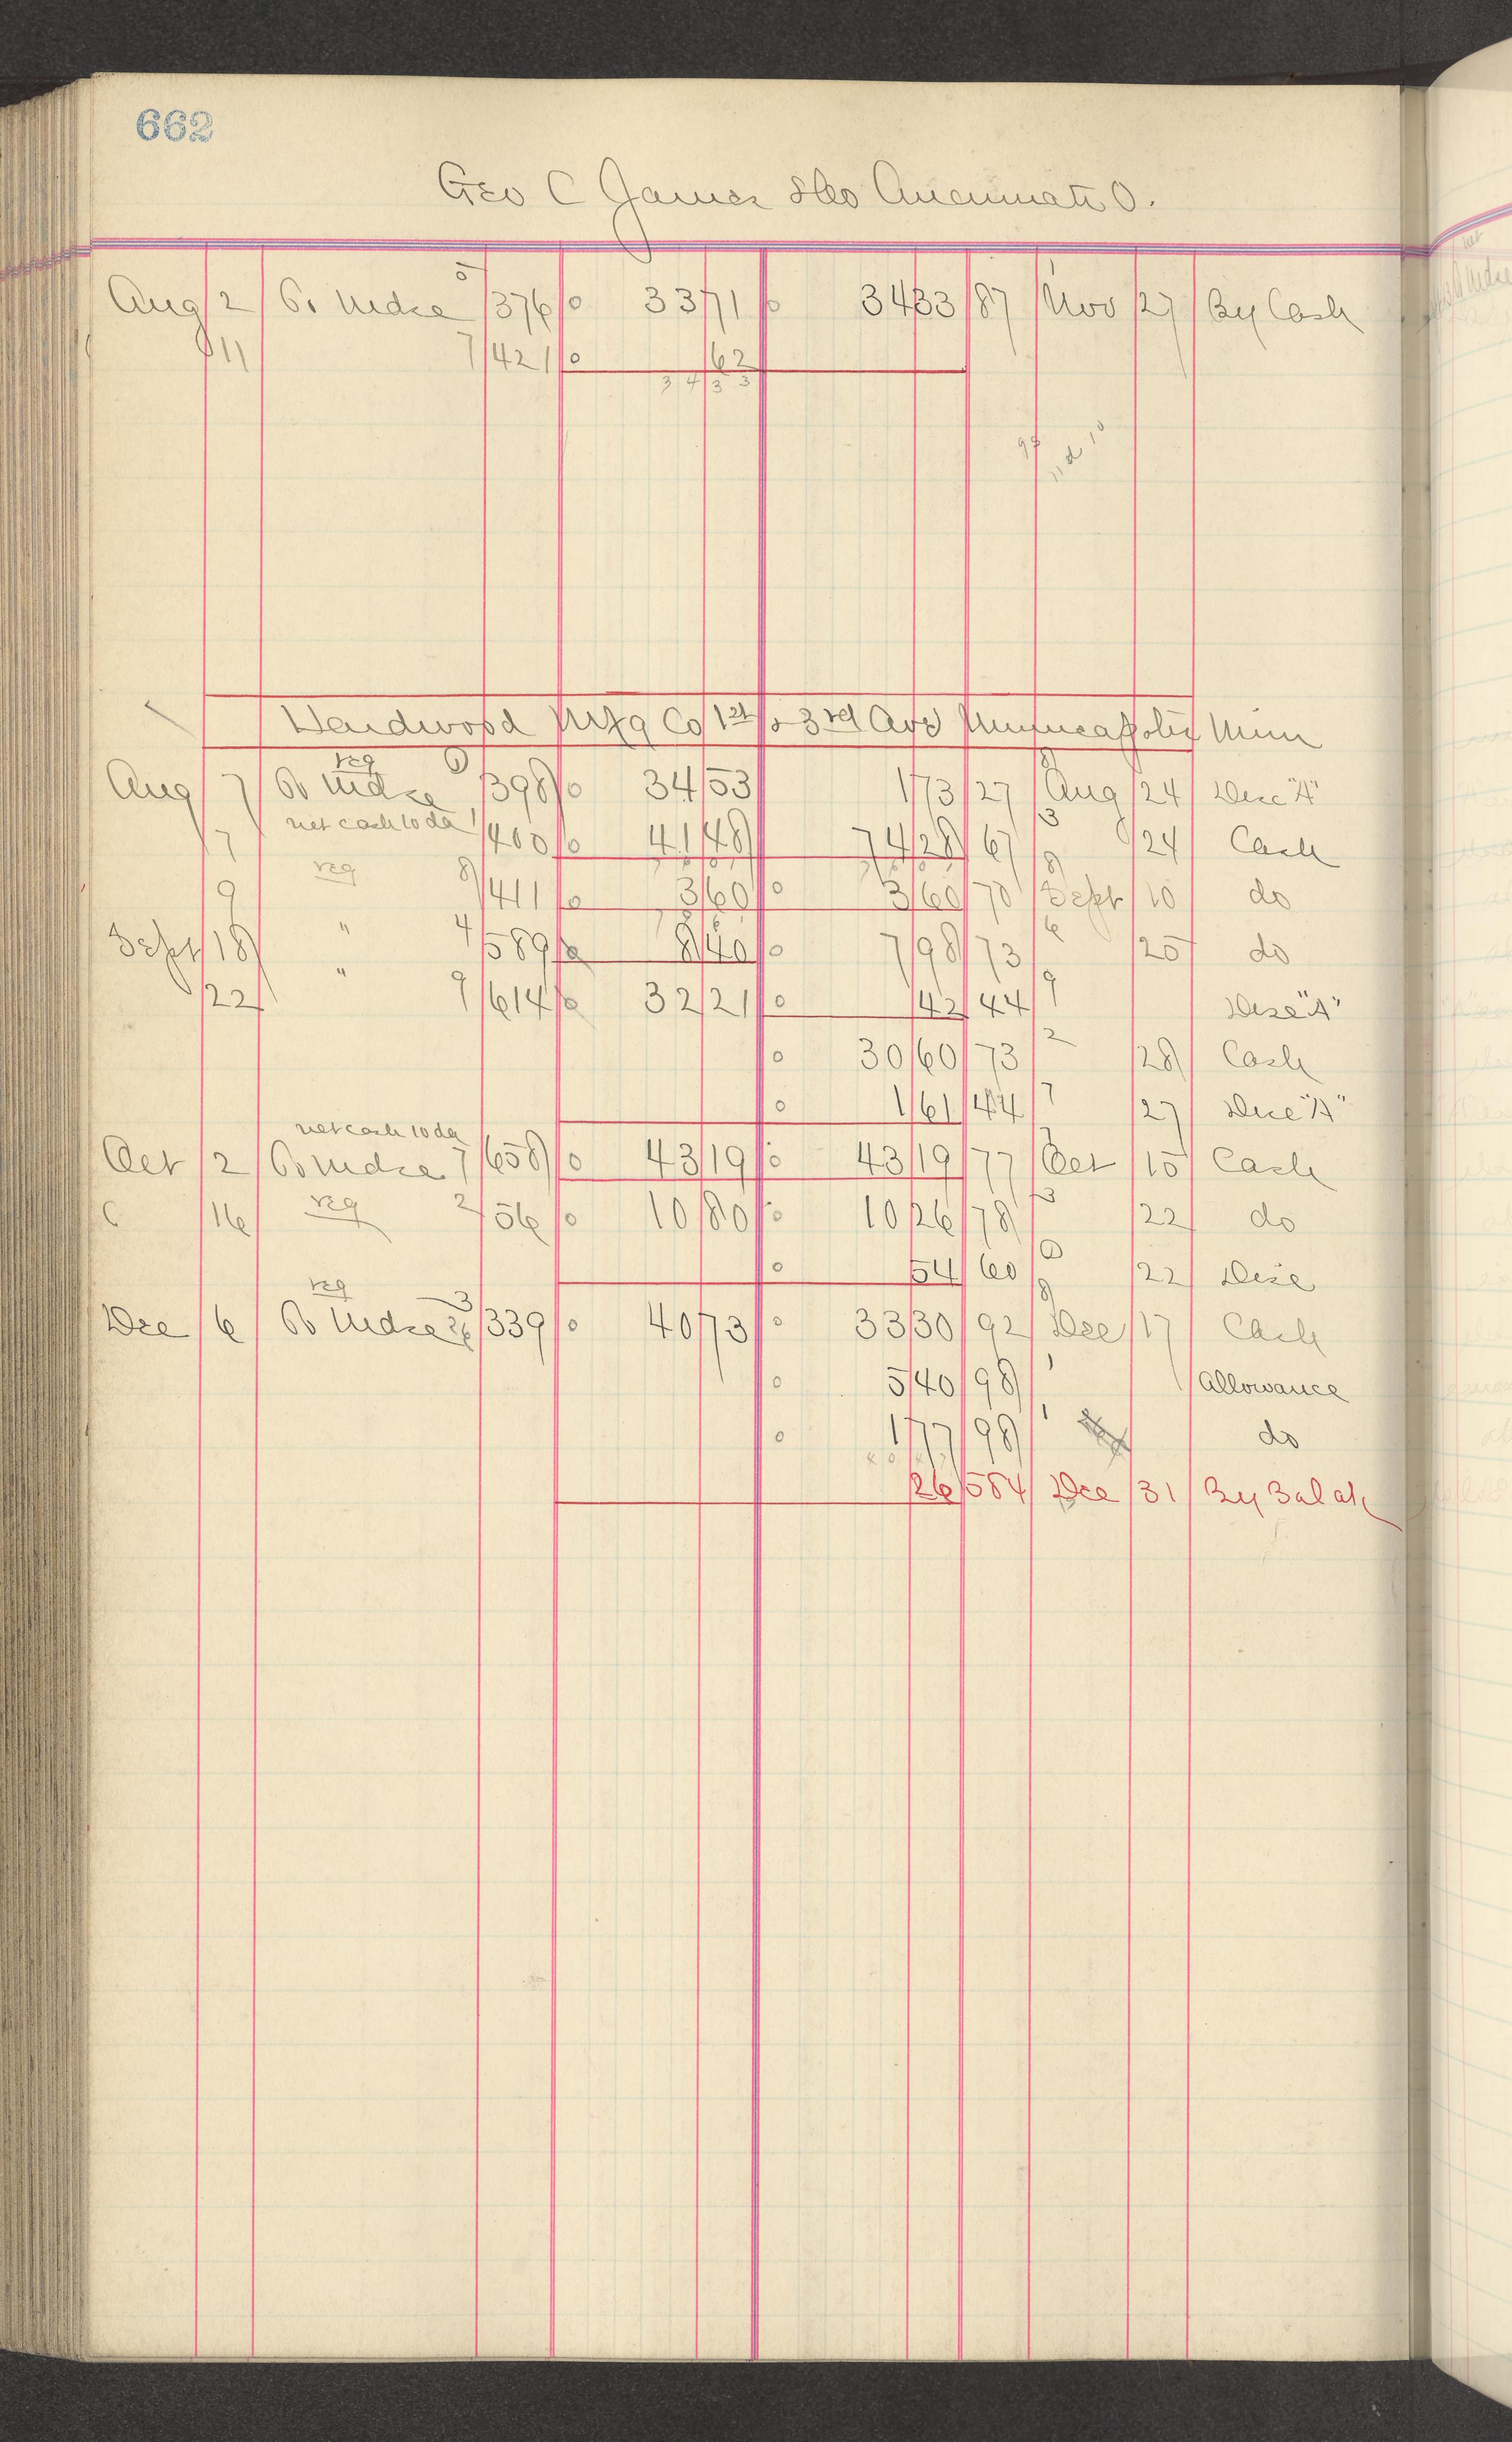 662
Geo C James & Co Cincinnati O.
5
Aug 2 To Mdse 376 33 71 34 33 87 Nov 27 By Cash
11 7 421 62
34 33
Hardwood Mfg Co 1st to 3rd Ave Minneapolis Minn
reg
Aug 7 To Mdse 398 34 53 1 73 27 Aug 24 Disc "A"
net cash 10 da
7 1 400 41 48 74 28 67 24 Cash
reg
9 8 411 3 60 3 60 70 Sept 10 do
Sept 18 " 4 589 8 40 7 98 73 25 do
22 " 9 614 32 21 42 44 Disc "A"
30 60 73 28 Cash
1 61 44 27 Disc "A"
net cash 10 da
Oct 2 To Mdse 7 658 43 19 43 19 77 Oct 15 Cash
16 reg 2 56 10 80 10 26 78 22 do
54 60 22 Disc
reg
Dec 6 To Mdse 339 40 73 33 30 92 Dec 17 Cash
5 40 98 Allowance
1 77 99 do
26 584 Dec 31 By Bal a/c